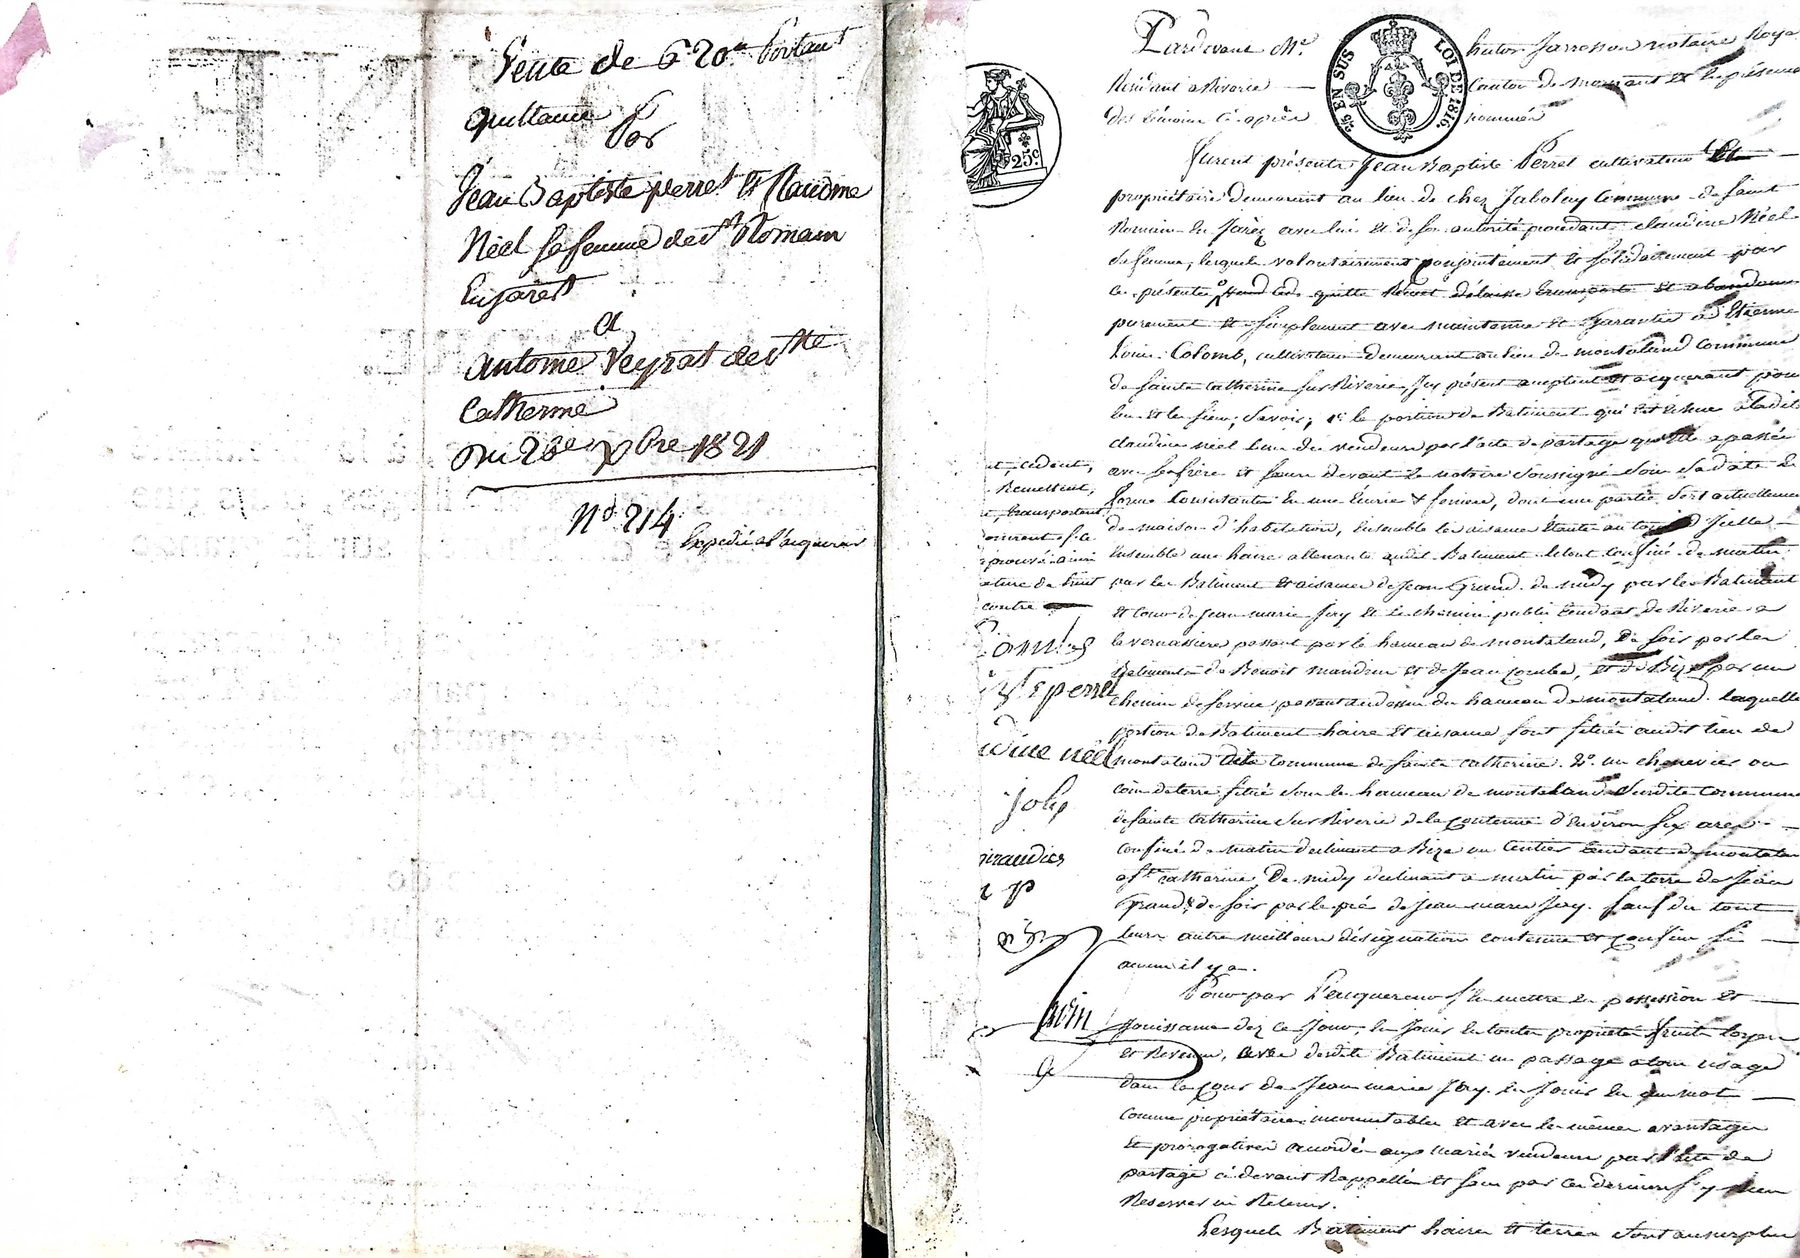 Vente de 620 portant
quittance
Par
Jean Baptiste perret et Claudine
Néel sa femme de St Romain
En jarest
A
antoine Veyrat de Ste
Catherine
Du 23e Xbre 1821
No 214
Expédié a l'acquereur
25 EN SUS LOI DE 1816.
25c.
Pardevant Me hector Jarrosson notaire Royal
Résidant a Riverie canton de mornant Et En présence
des témoins ci après nommés
furent présents Jean Baptiste Perret cultivateur Et
propriétaire demeurant au lieu de chez Jaboley Commune de Saint
Romain En Jarez avec lui et de son autorité procédant claudine Néel
sa femme, lesquels volontairement conjointement Et solidairement par
ces présentes vendent cedent quittent Remettent délaissent transportent Et abandonnent
purement Et simplement avec maintenue Et garantie a Etienne
Louis Colomb, cultivateur demeurant au lieu de montaland commune
de Sainte Catherine Sur Riverie, Icy présent acceptant Et acquerant pour
lui Et les Siens; Savoir, 1o la portion de Batiment qui Est échue a ladite
claudine néel l'un des vendeurs par l'acte de partage qu'elle a passé
avec Ses frère et soeurs devant Le notaire Soussigné Sous Sa date En
forme Consistante En une Ecurie & feniere, dont une partie Sert actuellement
de maison d'habitation, Ensemble les aisances Etante au d'Icelle
Ensemble une haire attenante audit Batiment le tout Confiné de matin
par les Batiment Et aisances de Jean Grand. de midy par les Batiment
Et cour de Jean marie Jay Et Le chemin public tendant de Riverie a
la vernassiere passant par le hameau de montaland, De soir par les
Batiments de Benoit mandrin et de Jean Combe, et de Bize par un
chemin de service passant au dessus du hameau de montaland. laquelle
portion de Batiment haire Et aisances sont situés audit lieu de
montaland dite commune de Sainte Catherine. 2o un chenevier ou
coin de terre Situé Sous le hameau de montaland Susdite commune
de Sainte Catherine Sur Riverie de la contenue d'Environ Six ares
confiné de matin declinant a Bize un Sentier tendant de montaland
a Ste Catherine, De midy declinant a matin par la terre de Jean
Grand, de soir par le pré de Jean marie Jay. Sauf du tout
leurs autres meilleures désignations contenue et confins Si
aucun il y a.
Pour par l'acquereur S'En mettre En possession Et
Jouissance dez ce Jour, En Jouir En toute propriété fruits loyers
Et Revenus, avec desdits Batiment un passage a tous usage
dans la Cour de Jean marie Jay. En Jouir En un mot
Comme propriétaire incommutable Et avec les mêmes avantages
Et prérogatives accordés aux mariés vendeurs par l'acte de
partage ci devant Rappellé Et Sans par ces derniers S'y Rien
Reserver ni Retenir.
Lesquels Batiment haire Et terres Sont au surplus
nt, cedent,
Remettent,
transportent
contre
perret
dine néel
jolly
giraudier